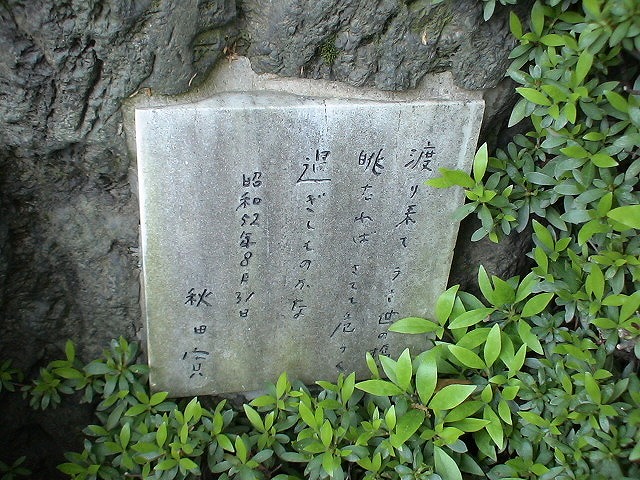 渡り来て うき世の橋
眺むれば さても危うく
過ぎしものかな
昭和52年8月31日
秋田實